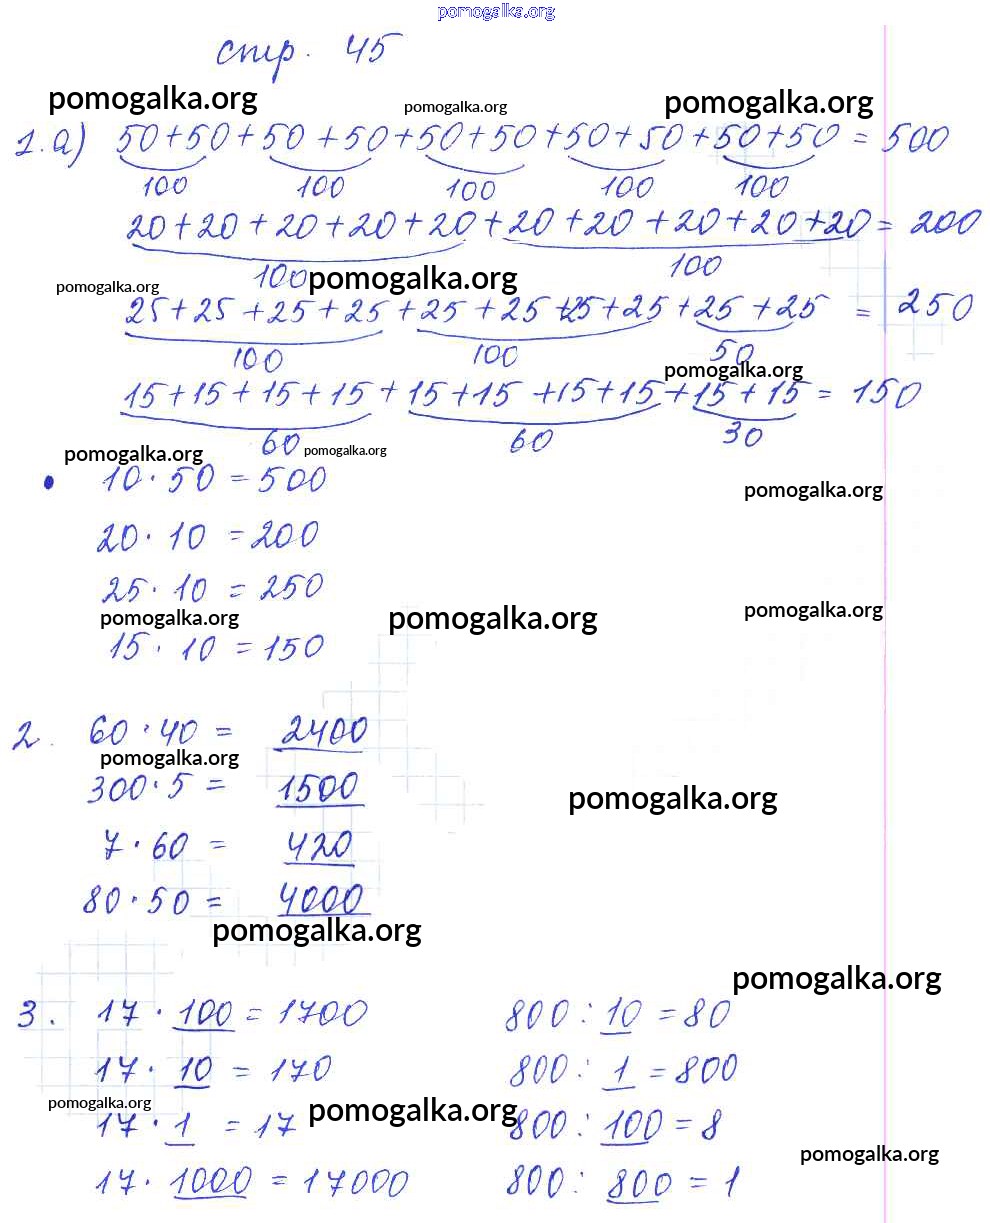 pomogalka.org
стр. 45
pomogalka.org pomogalka.org pomogalka.org
1. а) 50+50+50+50+50+50+50+50+50+50=500
100 100 100 100 100
20+20+20+20+20+20+20+20+20+20=200
100 pomogalka.org 100
pomogalka.org
25+25+25+25+25+25+25+25+25+25=250
100 100 50
pomogalka.org
15+15+15+15+15+15+15+15+15+15=150
60 60 30
pomogalka.org pomogalka.org
• 10·50=500
pomogalka.org
20·10=200
25·10=250
pomogalka.org pomogalka.org pomogalka.org
15·10=150
2. 60·40= 2400
pomogalka.org
300·5= 1500
pomogalka.org
7·60= 420
80·50= 4000
pomogalka.org
pomogalka.org
3. 17·100=1700 800:10=80
17·10=170 800:1=800
pomogalka.org pomogalka.org
17·1=17 800:100=8
pomogalka.org
17·1000=17000 800:800=1